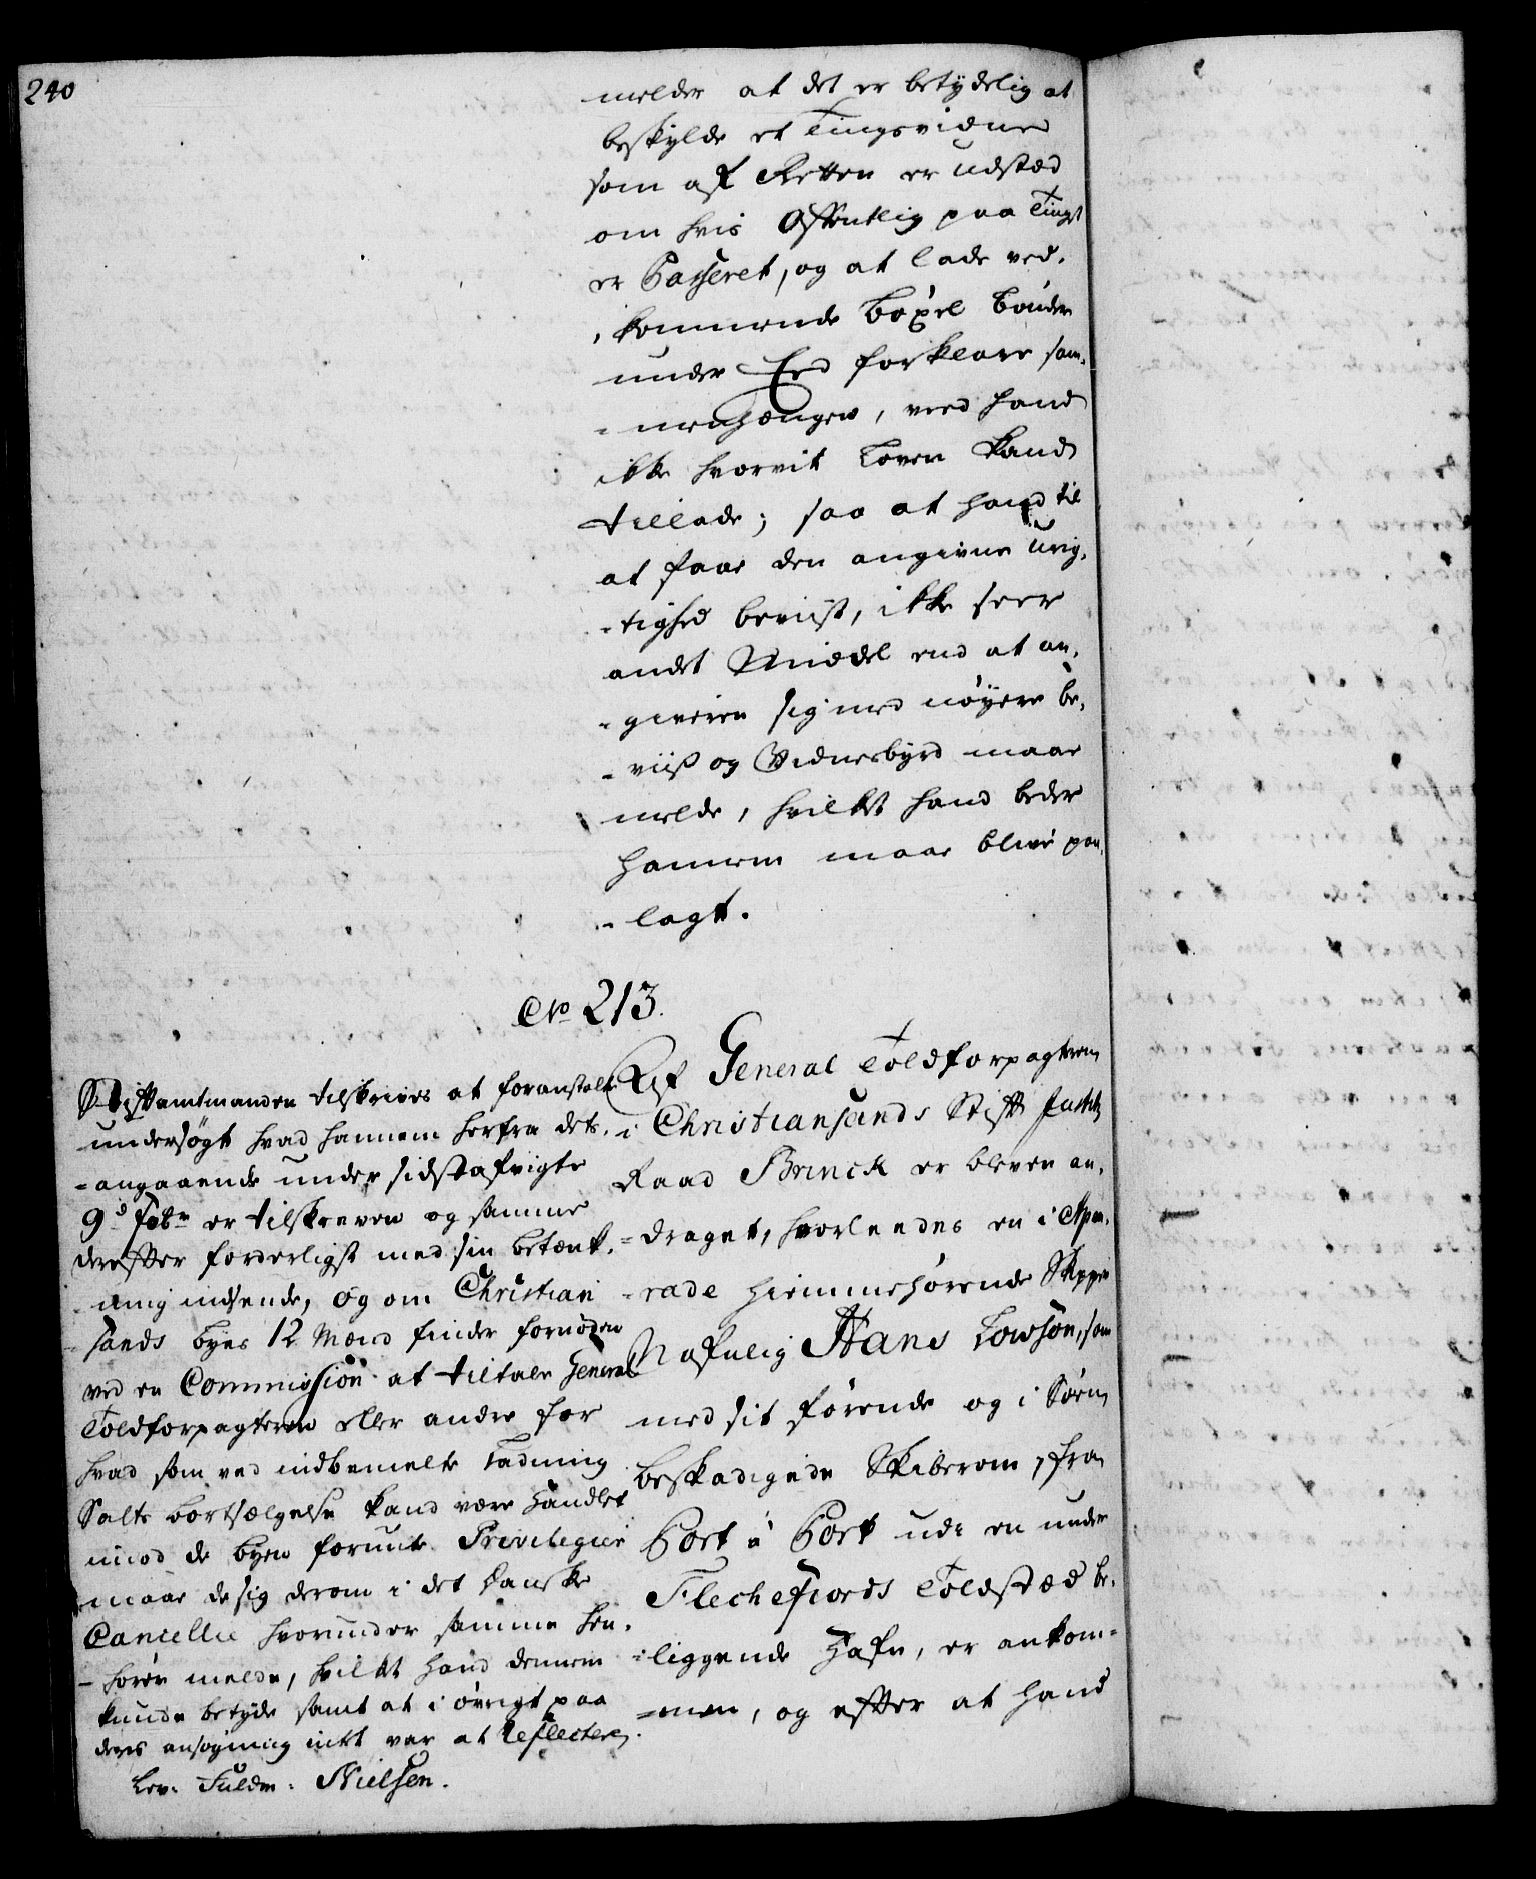 240
melder at det er betydelig at
beskylde et Tingsvidne
som af Retten er udstæd
om hvis offentlig paa Tinget
er Passeret, og at lade ved-
-kommende Böxel Bönder
under Eed forklare sam-
-menhængen, veed hand
ikke hvorvit Loven kand
tillade; saa at hand til
at faae den angivne Urig-
-tighed beviist, ikke seer
andet Middel end at an-
-giveren sig med nöyere be-
-viis og Vidnesbyrd maae
melde, hvilket hand beder
hannem maae blive paa-
-lagt.
No 213.
Stiftamtmanden tilskrives at foranstalte
undersögt hvad hannem herfra det-
-angaaende under sidstafvigte
9d Febr er tilskreven og samme
derefter forderligst med sin betænk-
-ning indsende, og om Christian
-sands byes 12 Mænd finder fornöden
ved en Commission at tiltale General
Toldforpagteren eller andre for
hvad som ved indbemelte Ladning
Salts bortsælgelse kand være handlet
imod de byen forundte Privilegier
maae de sig derom i det Danske
Cancellie hvorunder samme hen-
-hörer melde, hvilket hand dennem
kunde betyde samt at i övrigt paa
deres ansögning intet var at Reflectere.
Lev. Fuldm. Nielsen.
Af General Toldforpagteren
i Christiansands Stift Justitz
Raad Brinck er bleven an-
-draget, hvorledes en i Apen-
-rade hiemmehörende Skipper
Nafnlig Hans Lowson, som
med sit förende og i Söen
beskadigede Skiberom, fra
Port à Port udi en under
Flechefiords Toldstæd be-
-liggende Hafn, er ankom-
-men, og efter at hand